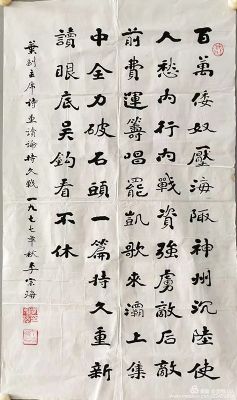 百萬倭奴壓海陬神州沉陸使
人愁内行内戰資強虜敵后敵
前費運籌唱罷凱歌來灞上集
中全力破石頭一篇持久重新
讀眼底吳鈎看不休
葉副主席詩重讀論持久戰一九七七年秋李宗海